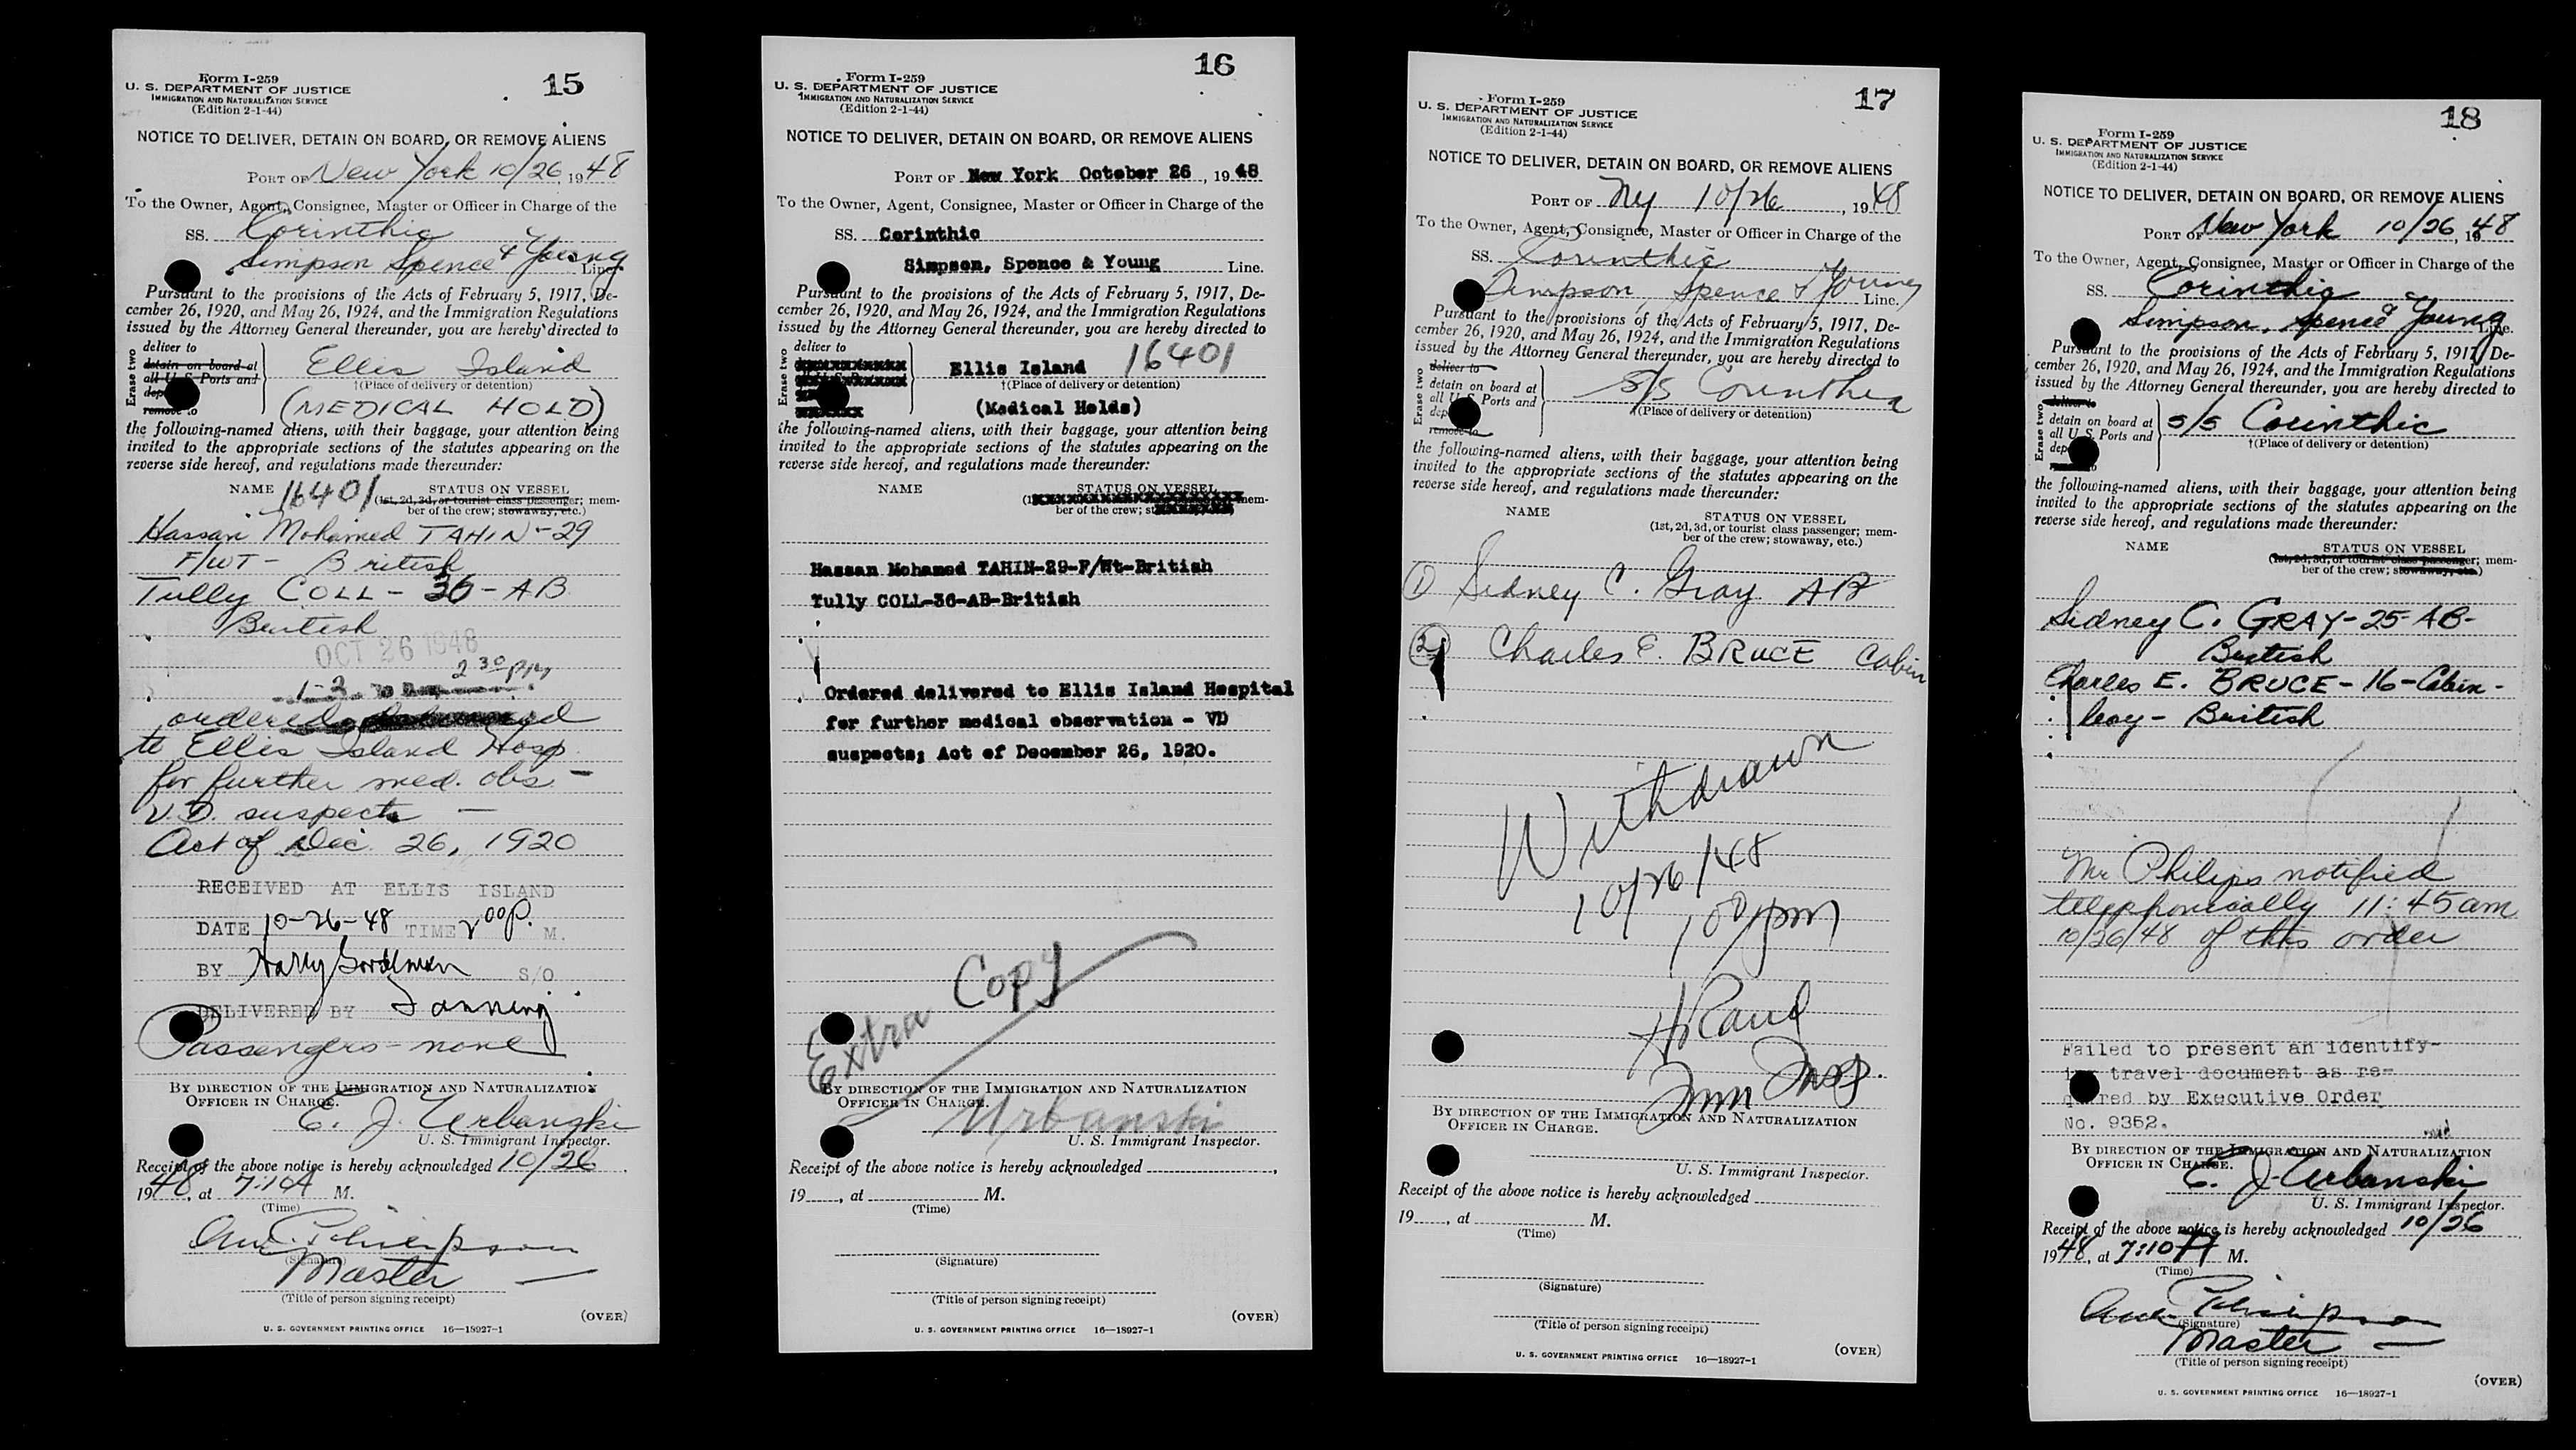 15
Form I-259
U. S. DEPARTMENT OF JUSTICE
IMMIGRATION AND NATURALIZATION SERVICE
(Edition 2-1-44)
NOTICE TO DELIVER, DETAIN ON BOARD, OR REMOVE ALIENS
PORT OF New York 10/26, 1948
To the Owner, Agent, Consignee, Master or Officer in Charge of the
SS. Corinthic
Simpson Spence & Young Line.
Pursuant to the provisions of the Acts of February 5, 1917, De-
cember 26, 1920, and May 26, 1924, and the Immigration Regulations
issued by the Attorney General thereunder, you are hereby directed to
Erase two
deliver to
detain on board at
all U. S. Ports and
dep
remove to
Ellis Island
†(Place of delivery or detention)
(MEDICAL HOLD)
the following-named aliens, with their baggage, your attention being
invited to the appropriate sections of the statutes appearing on the
reverse side hereof, and regulations made thereunder:
NAME 16401 STATUS ON VESSEL
(1st, 2d, 3d, or tourist class passenger; mem-
ber of the crew; stowaway, etc.)
Hassan Mohamed TAHIN-29
F/WT - British
Tully COLL - 36 - AB
British
OCT 26 1948
2 30 pm
ordered
to Ellis Island Hosp.
for further med. obs -
V.D. suspects -
Act of Dec. 26, 1920
RECEIVED AT ELLIS ISLAND
DATE 10-26-48 TIME 2 00 P. M.
BY Harry S/O
DELIVERED BY
Passengers - none
BY DIRECTION OF THE IMMIGRATION AND NATURALIZATION
OFFICER IN CHARGE.
E. J. Urbanski
U. S. Immigrant Inspector.
Receipt of the above notice is hereby acknowledged 10/26
1948, at 7:10A M.
(Time)
(Signature)
Master
(Title of person signing receipt)
(OVER)
U. S. GOVERNMENT PRINTING OFFICE 16—18927-1
16
Form I-259
U. S. DEPARTMENT OF JUSTICE
IMMIGRATION AND NATURALIZATION SERVICE
(Edition 2-1-44)
NOTICE TO DELIVER, DETAIN ON BOARD, OR REMOVE ALIENS
PORT OF New York October 26, 1948
To the Owner, Agent, Consignee, Master or Officer in Charge of the
SS. Corinthic
Simpson, Spence & Young Line.
Pursuant to the provisions of the Acts of February 5, 1917, De-
cember 26, 1920, and May 26, 1924, and the Immigration Regulations
issued by the Attorney General thereunder, you are hereby directed to
Erase two
deliver to
Ellis Island 16401
†(Place of delivery or detention)
(Medical Holds)
the following-named aliens, with their baggage, your attention being
invited to the appropriate sections of the statutes appearing on the
reverse side hereof, and regulations made thereunder:
NAME STATUS ON VESSEL
mem-
ber of the crew;
Hassan Mohamed TAHIN-29-F/Wt-British
Tully COLL-36-AB-British
Ordered delivered to Ellis Island Hospital
for further medical observation - VD
suspects; Act of December 26, 1920.
Extra Copy
BY DIRECTION OF THE IMMIGRATION AND NATURALIZATION
OFFICER IN CHARGE.
Urbanski
U. S. Immigrant Inspector.
Receipt of the above notice is hereby acknowledged
19 , at M.
(Time)
(Signature)
(Title of person signing receipt)
(OVER)
U. S. GOVERNMENT PRINTING OFFICE 16—18927-1
17
Form I-259
U. S. DEPARTMENT OF JUSTICE
IMMIGRATION AND NATURALIZATION SERVICE
(Edition 2-1-44)
NOTICE TO DELIVER, DETAIN ON BOARD, OR REMOVE ALIENS
PORT OF NY 10/26, 1948
To the Owner, Agent, Consignee, Master or Officer in Charge of the
SS. Corinthic
Simpson, Spence & Young Line.
Pursuant to the provisions of the Acts of February 5, 1917, De-
cember 26, 1920, and May 26, 1924, and the Immigration Regulations
issued by the Attorney General thereunder, you are hereby directed to
Erase two
deliver to
detain on board at
all U. S. Ports and
dep
remove to
S/S Corinthic
†(Place of delivery or detention)
the following-named aliens, with their baggage, your attention being
invited to the appropriate sections of the statutes appearing on the
reverse side hereof, and regulations made thereunder:
NAME STATUS ON VESSEL
(1st, 2d, 3d, or tourist class passenger; mem-
ber of the crew; stowaway, etc.)
1 Sidney C. Gray AB
2 Charles E. BRUCE Cabin
Withdrawn
10/26/48
1 00 pm
Imm Insp.
BY DIRECTION OF THE IMMIGRATION AND NATURALIZATION
OFFICER IN CHARGE.
U. S. Immigrant Inspector.
Receipt of the above notice is hereby acknowledged
19 , at M.
(Time)
(Signature)
(Title of person signing receipt)
(OVER)
U. S. GOVERNMENT PRINTING OFFICE 16—18927-1
18
Form I-259
U. S. DEPARTMENT OF JUSTICE
IMMIGRATION AND NATURALIZATION SERVICE
(Edition 2-1-44)
NOTICE TO DELIVER, DETAIN ON BOARD, OR REMOVE ALIENS
PORT OF New York 10/26, 1948
To the Owner, Agent, Consignee, Master or Officer in Charge of the
SS. Corinthic
Simpson, Spence & Young Line.
Pursuant to the provisions of the Acts of February 5, 1917, De-
cember 26, 1920, and May 26, 1924, and the Immigration Regulations
issued by the Attorney General thereunder, you are hereby directed to
Erase two
deliver to
detain on board at
all U. S. Ports and
dep
S/S Corinthic
†(Place of delivery or detention)
the following-named aliens, with their baggage, your attention being
invited to the appropriate sections of the statutes appearing on the
reverse side hereof, and regulations made thereunder:
NAME STATUS ON VESSEL
(1st, 2d, 3d, or tourist class passenger; mem-
ber of the crew; stowaway, etc.)
Sidney C. GRAY-25-AB-
British
Charles E. BRUCE-16-Cabin-
boy - British
Mr Philips notified
telephonically 11:45 am
10/26/48 of this order
Failed to present an identify-
ing travel document as re-
quired by Executive Order
No. 9352.
BY DIRECTION OF THE IMMIGRATION AND NATURALIZATION
OFFICER IN CHARGE.
E. J. Urbanski
U. S. Immigrant Inspector.
Receipt of the above notice is hereby acknowledged 10/26
1948, at 7:10A M.
(Time)
(Signature)
Master
(Title of person signing receipt)
(OVER)
U. S. GOVERNMENT PRINTING OFFICE 16—18927-1